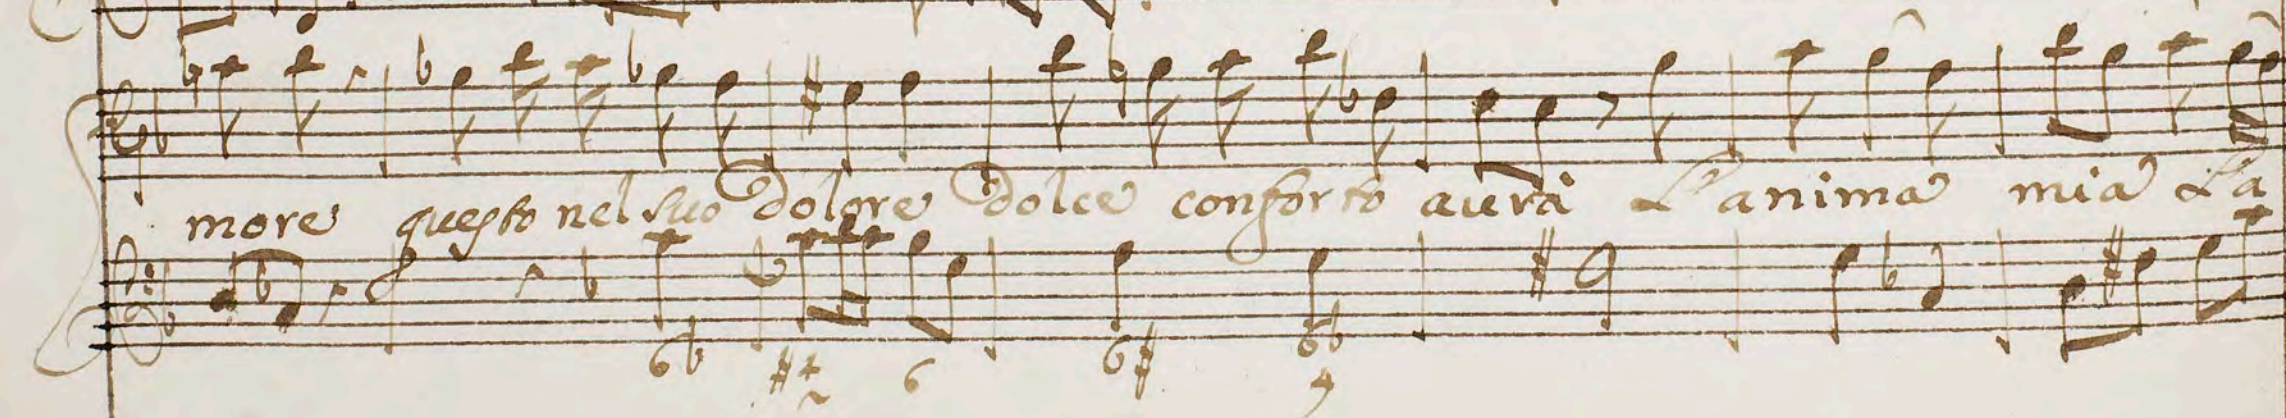 more questo nel suo dolore dolce conforto auerà L'anima mia L'a
6b #4 6 6# 6b